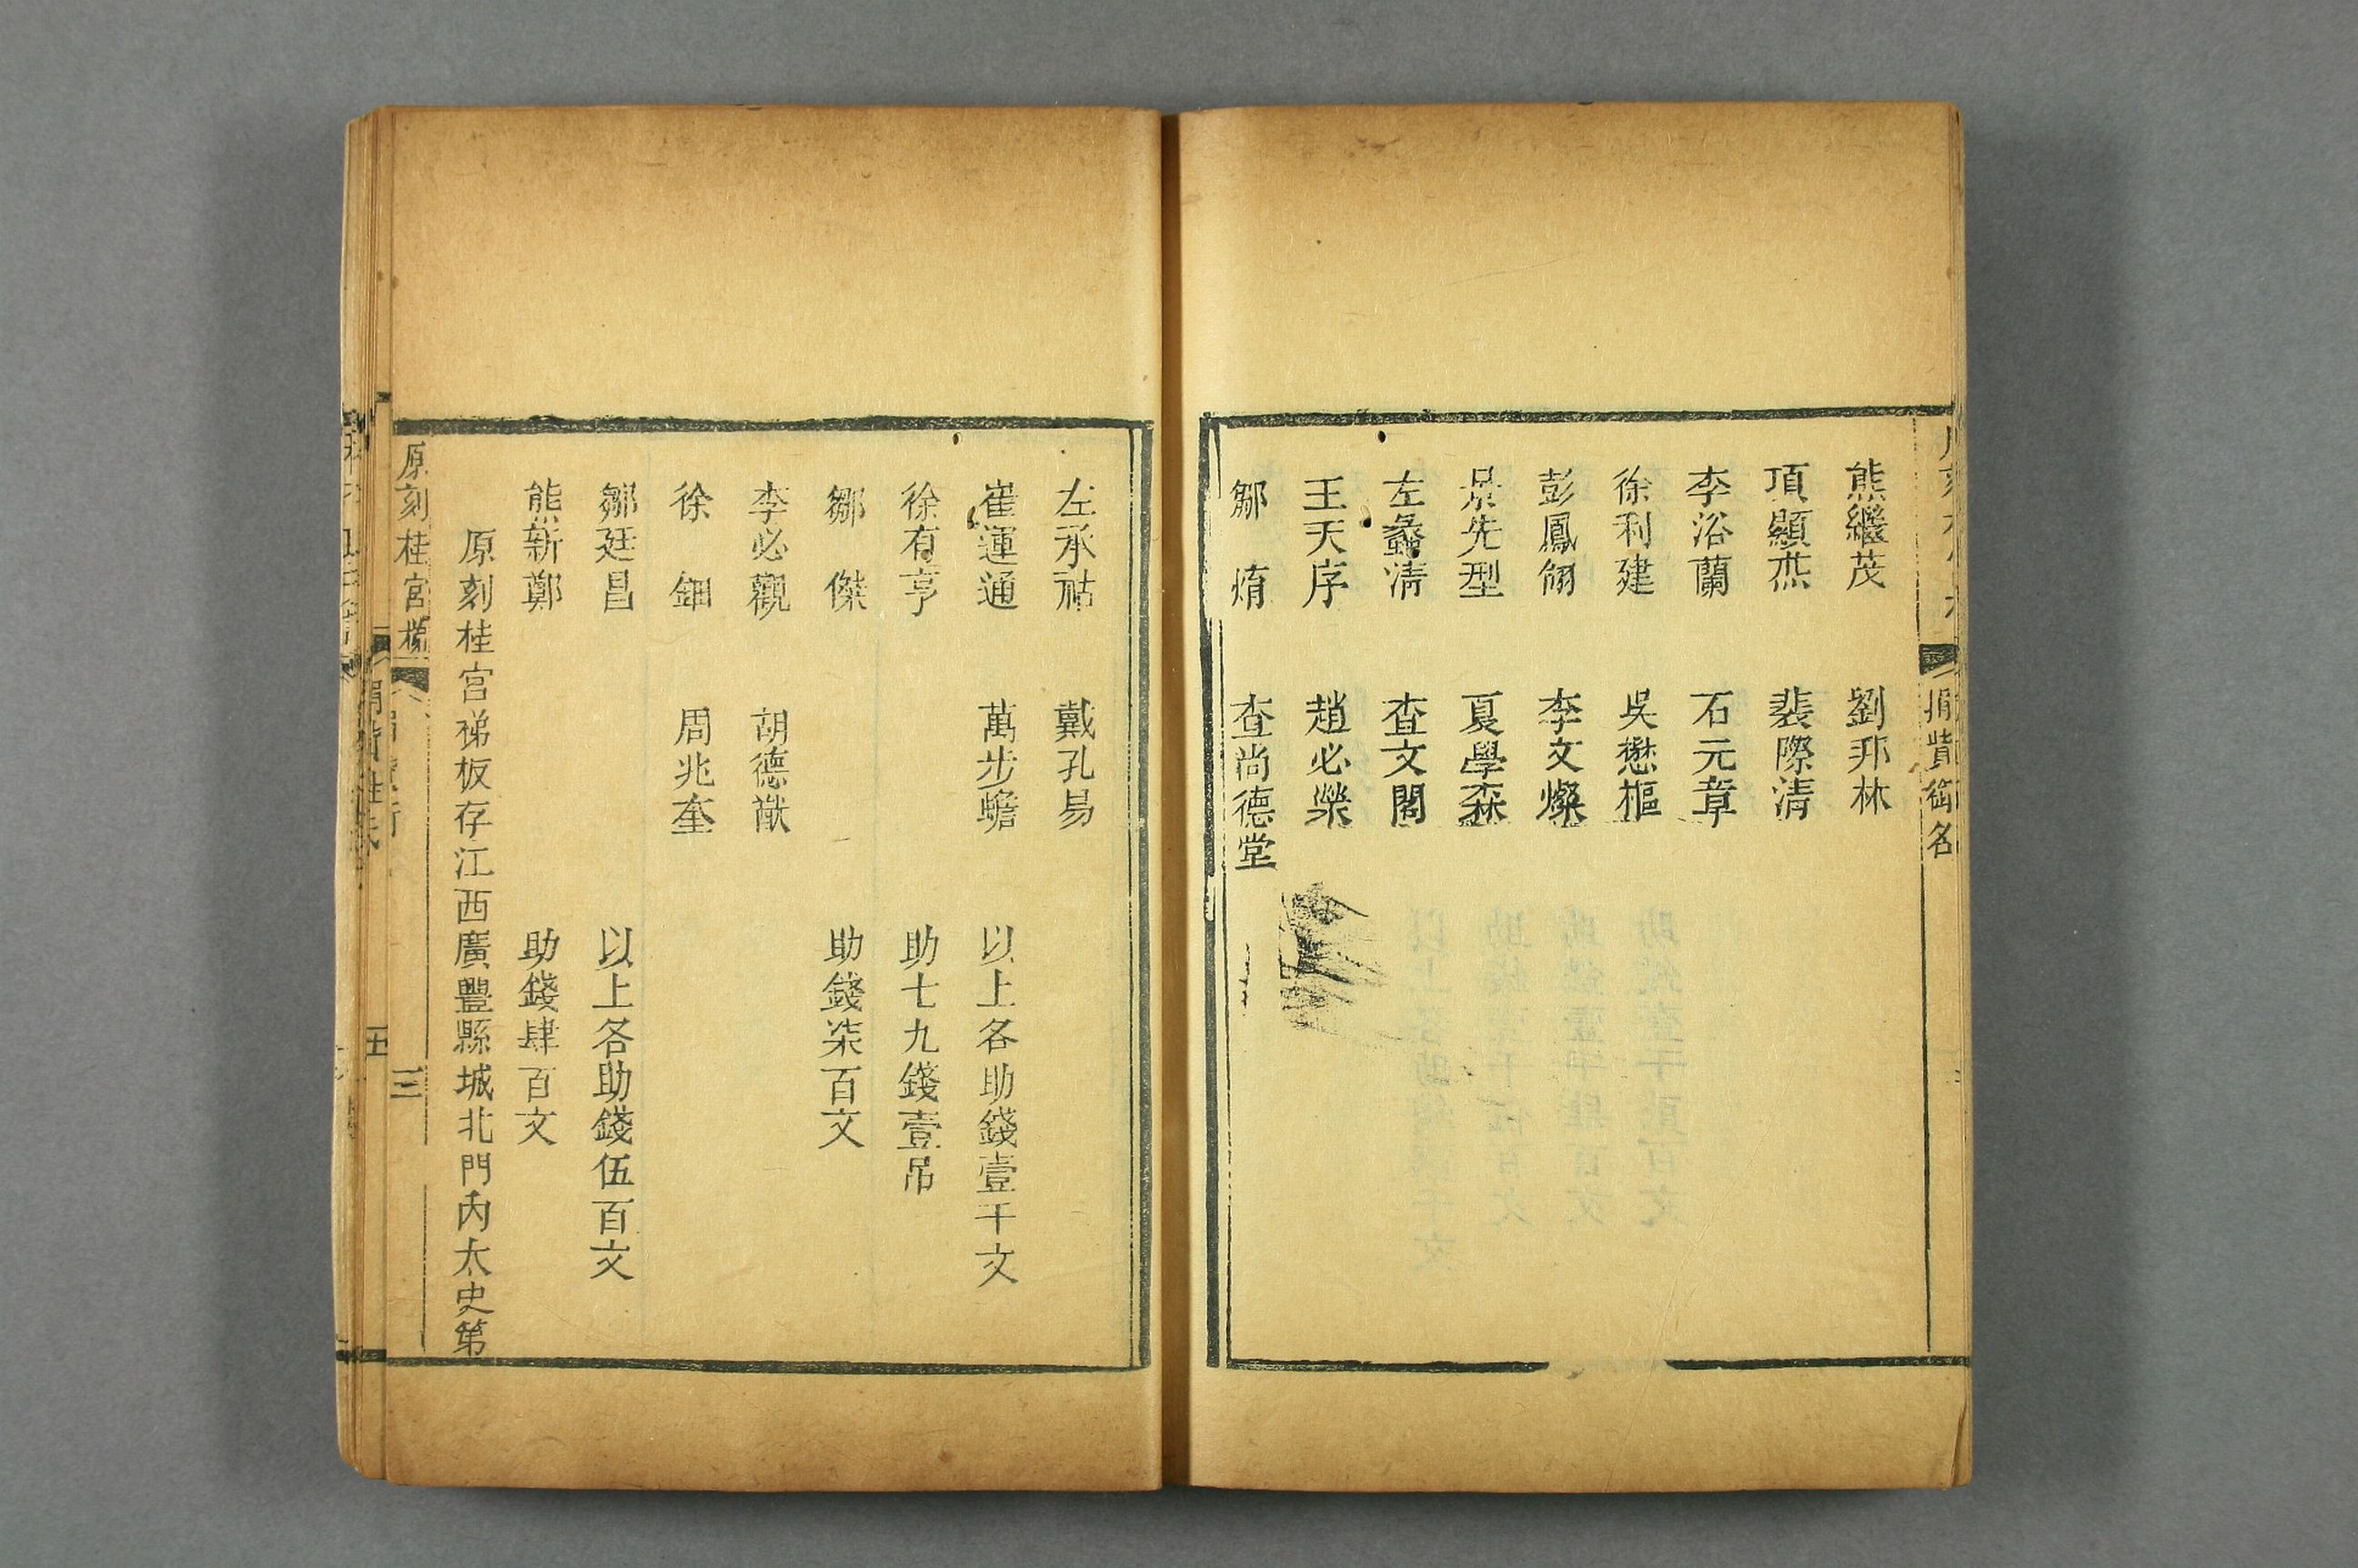 捐貲銜名
熊繼茂 劉邦林
項顯燕 裴際清
李浴蘭 石元章
徐利建 吳懋樞
彭鳳翎 李文燦
景先型 夏學森
左蠡清 查文閣
王天序 趙必榮
鄒焴 查尚德堂
左承祜 戴孔易
崔運通 萬步蟾 以上各助錢壹千文
徐有亨 助七九錢壹吊
鄒傑 助錢柒百文
李必觀 胡德猷
徐鈿 周兆奎
鄒廷昌 以上各助錢伍百文
熊新鄭 助錢肆百文
原刻桂宮梯板存江西廣豐縣城北門內太史第
原刻桂宮梯 三